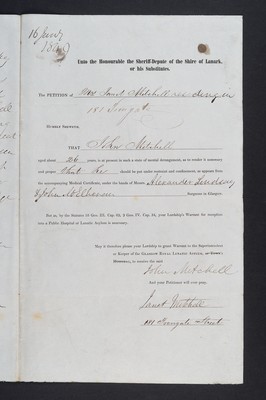 16 Jany
1849
Unto the Honourable the Sheriff-Depute of the Shire of Lanark,
or his Substitutes.
The PETITION of Mrs Janet Mitchell residing in
181 Trongate
HUMBLY SHEWETH,
THAT John Mitchell
aged about 26 years, is at present in such a state of mental derangement, as to render it necessary
and proper that he should be put under restraint and confinement, as appears from
the accompanying Medical Certificate, under the hands of Messrs Alexander Lindsay
& John Wilkinson Surgeons in Glasgow.
For as, by the Statutes 55 Geo. III. Cap. 69, 9 Geo. IV. Cap. 34, your Lordship's Warrant for reception
into a Public Hospital or Lunatic Asylum is necessary.
May it therefore please your Lordship to grant Warrant to the Superintendent
or Keeper of the GLASGOW ROYAL LUNATIC ASYLUM, or TOWN'S
HOSPITAL, to receive the said
John Mitchell
And your Petitioner will ever pray,
Janet Mitchell
181 Trongate Street